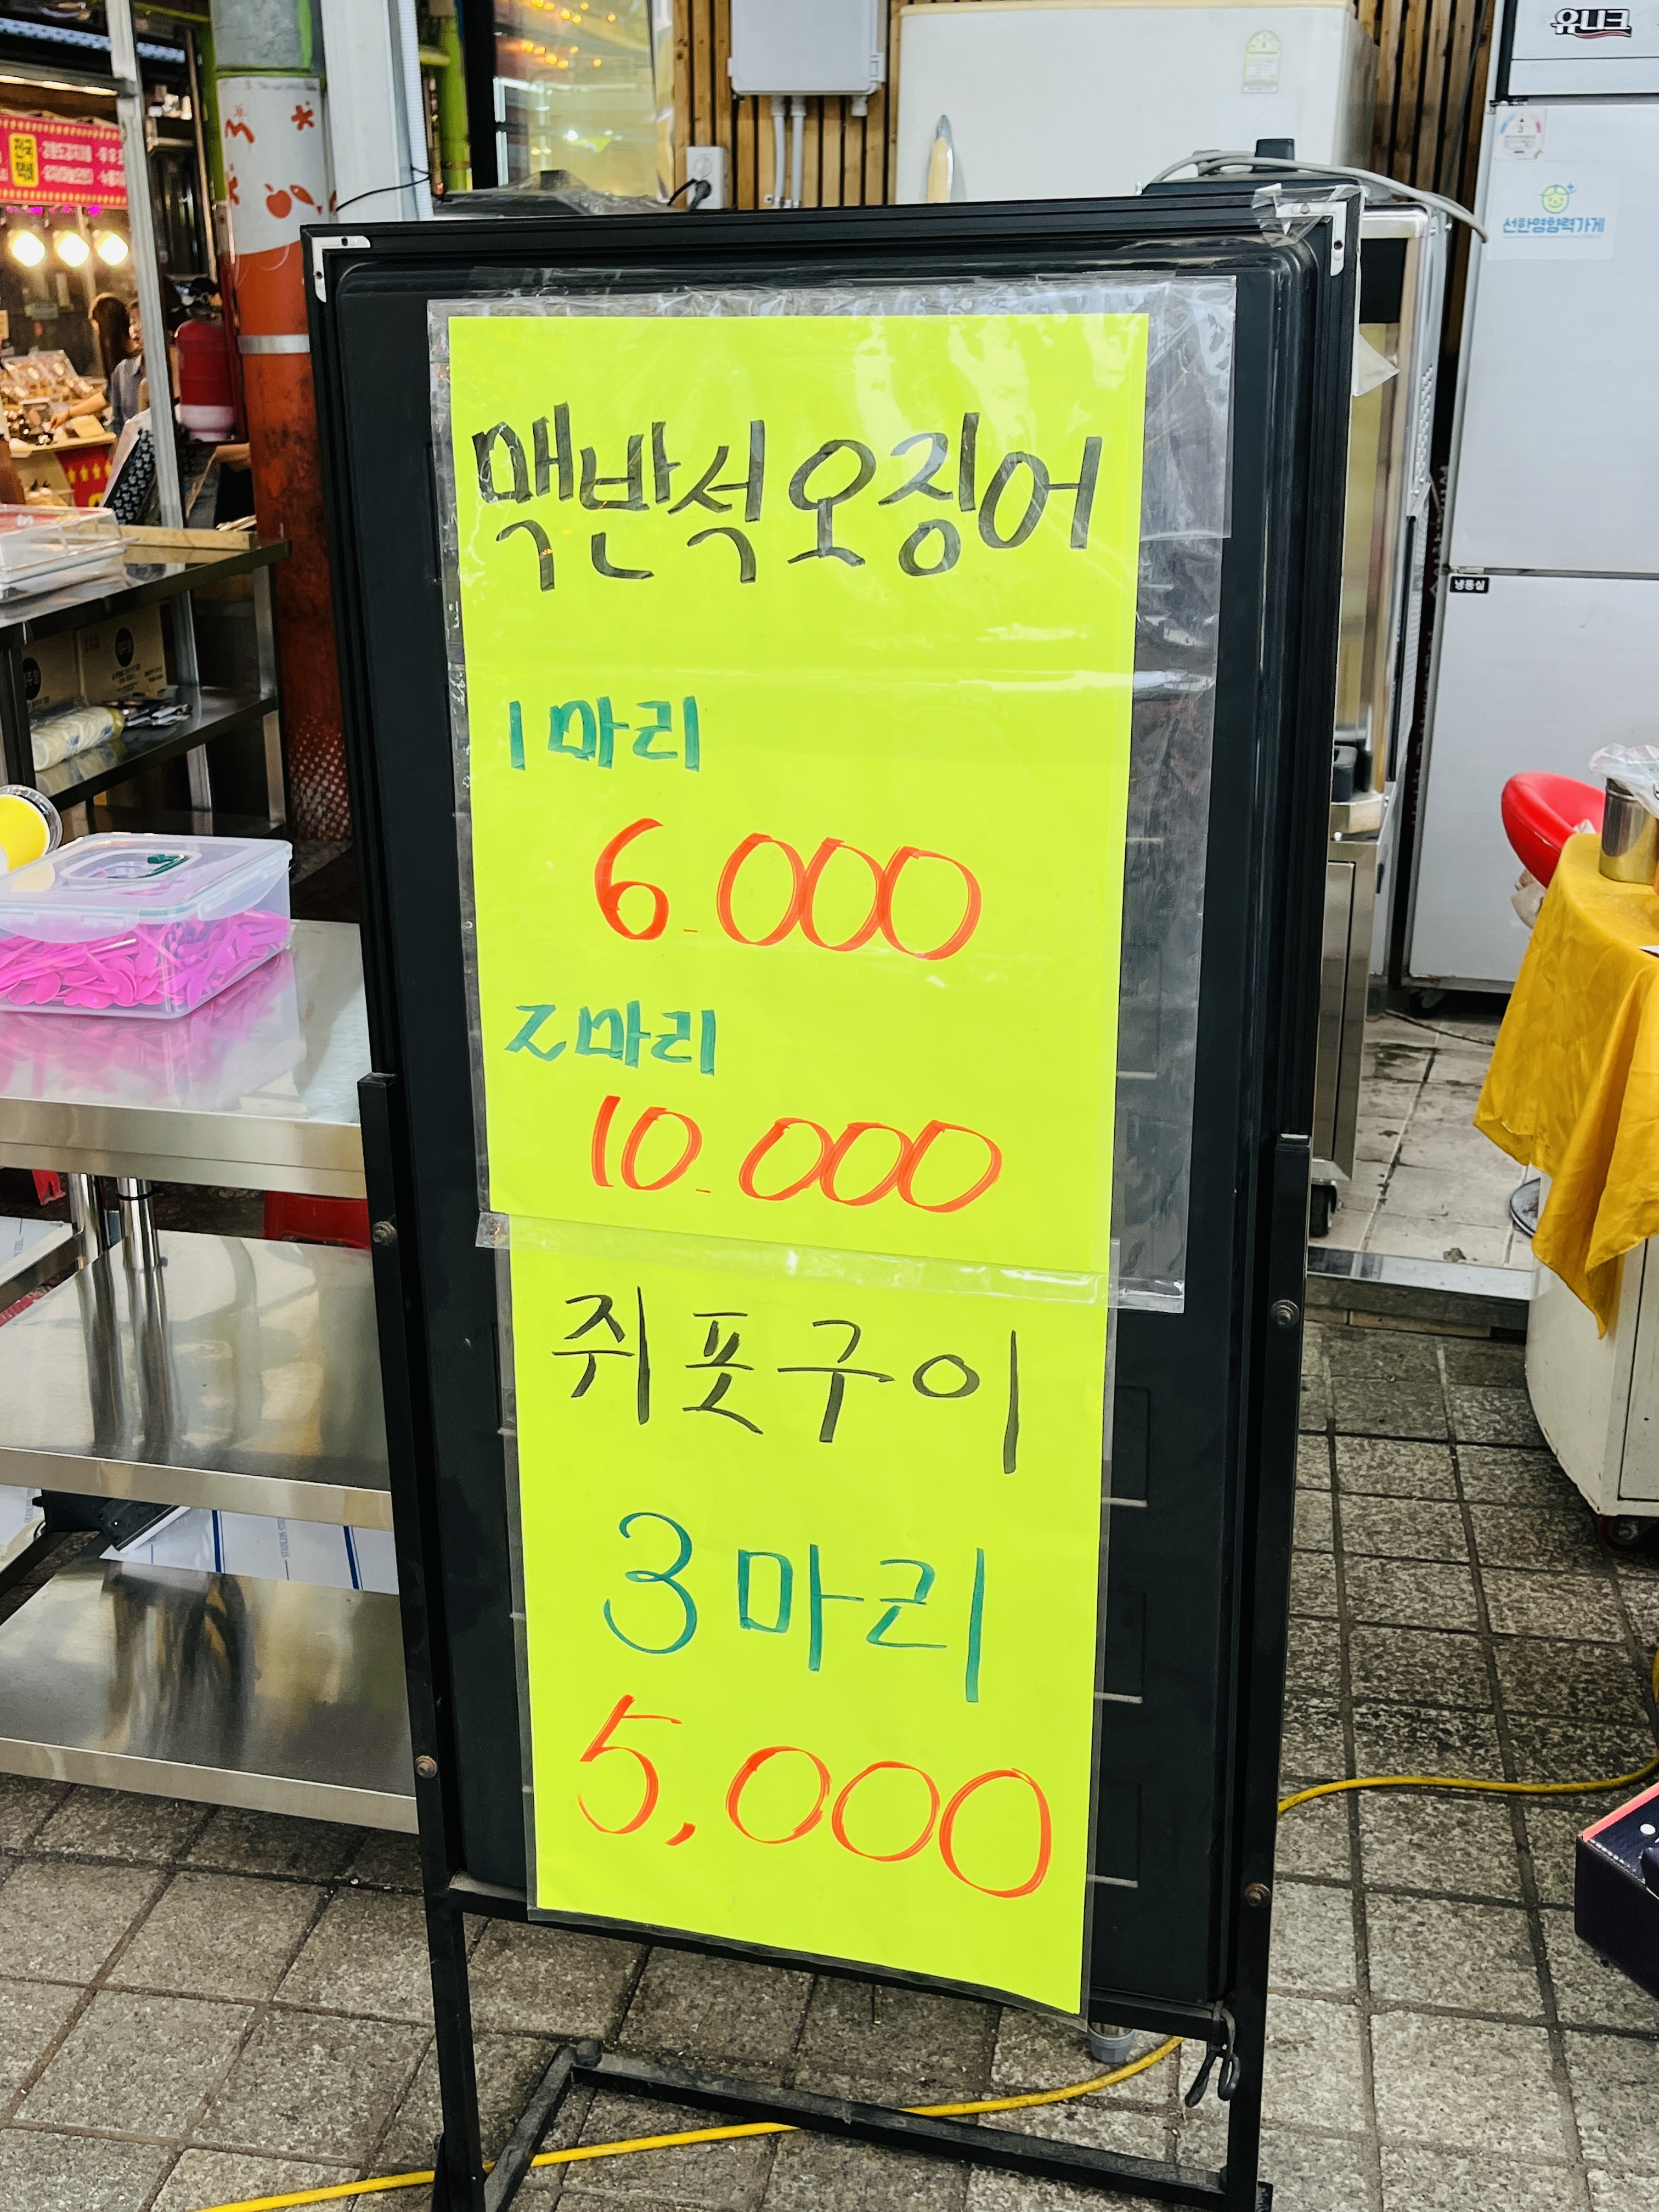 유니크
선한영향력가게
냉동실
맥반석오징어
1마리
6.000
2마리
10.000
쥐폿구이
3마리
5,000